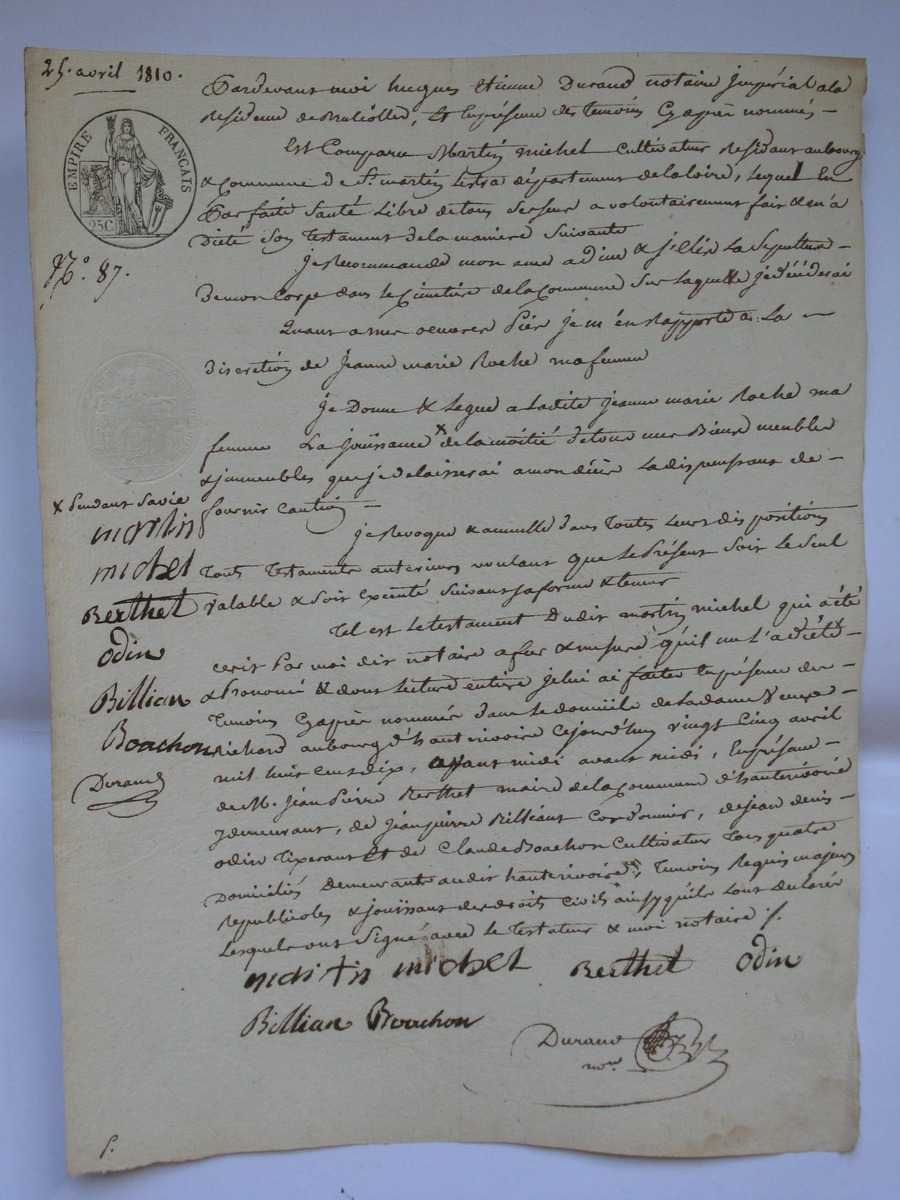 25. avril 1810.
EMPIRE FRANÇAIS
25C
N.° 87.
Pardevant moi hugues Etienne Durand notaire jmpérial ala
Residence de , Et Enprésence des Temoins Cyaprès nommés -
Est Comparu Martin michel Cultivateur Residant aubourg
& Commune de S.t martin Lestra département delaloire, Lequel En
Parfaite Santé Libre detous Sessens a volontairement fait & m'a
Dicté Son Testament dela maniere Suivante
je Recommande mon ame a dieu & j'Elis La Sepulture -
Demon Corps dans le Cimetière dela Commune Sur Laquelle je décéderai
Quant ames oeuvres Pies je m'en Rapporte a La -
Discrétion de jeanne marie Roche ma femme
je Donne & Legue a Ladite jeanne marie Roche ma
femme La jouissance x dela moitié detous mes Biens meubles
& jmmeubles que je delaisserai a mon décès La dispensant de -
fournir Caution -
x Pendant Savie
martin
michel
Berthet
odin
Billian
Boachon
Durand
je Revoque & annulle dans Toutes Leurs dispositions
Touts Testaments anterieurs voulant que Le Présent Soit Le Seul
valable & Soit Executé Suivant Saforme & teneur
Tel est Le testament Dudit martin michel qui a été
ecrit Par moi dit notaire a fur & mesure qu'il me L'a dicté -
& Prononcé & dont Lecture entiere je lui ai faite Enprésence des -
Temoins Cyaprès nommés dans Le domicile de Ladame Veuve -
Richard aubourg d'hauterivoire Cejourd'huy vingt Cinq avril
mil huit Cent dix, avant midi, Enprésence -
de M. jean Pierre Berthet maire dela Commune d'hauterivoire
ydemeurant, de jean pierre Billiant Cordonnier, de jean denis -
odin Tixerant Et de Claude Boachon Cultivateur Tous quatre
Domiciliés Demeurants audit hauterivoire, Temoins Requis majeurs
Republicoles & jouissant des droits Civils ainsy qu'ils L'ont declaré
Lesquels ont Signé avec le Testateur & moi notaire ./.
martin michel Berthet odin
Billian Boachon
Durand
no.re